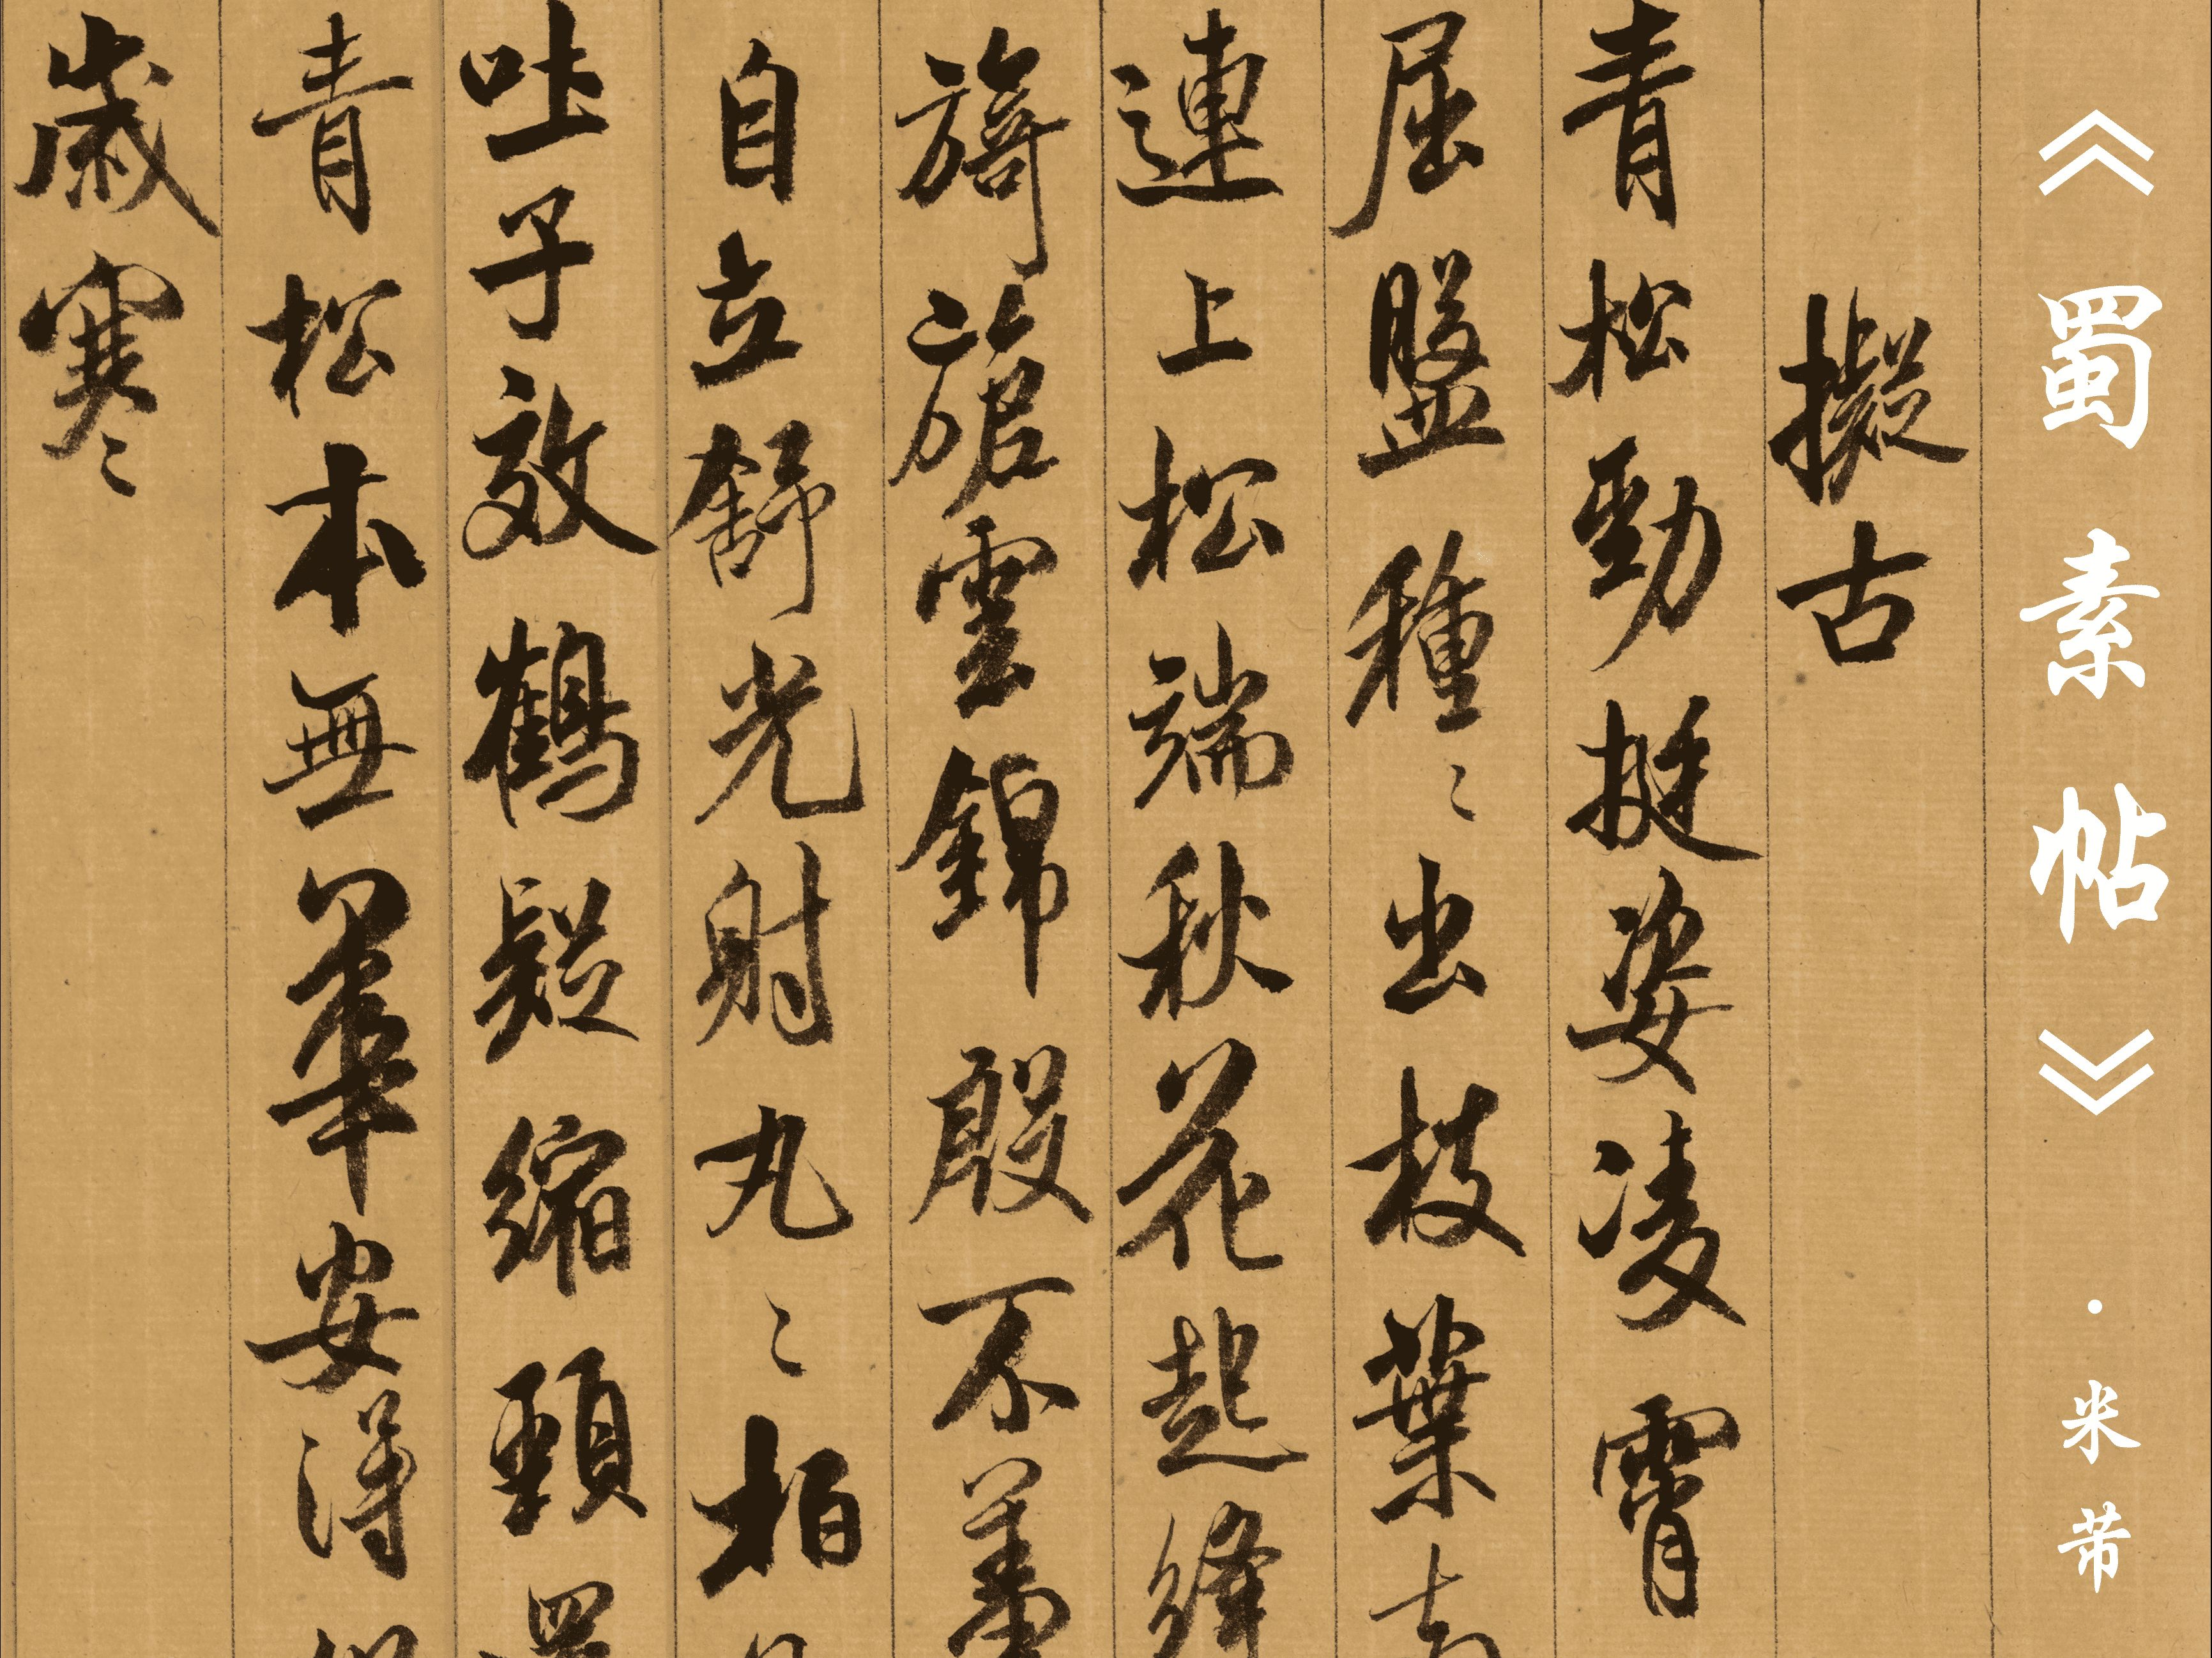 《蜀素帖》·米芾
擬古
青松勁挺姿凌霄
屈盤種〻出枝葉
連上松端秋花起絳
旖旎雲錦殷不羞
自立舒光射丸〻柏
吐子效鶴疑縮頸
青松本無華安得
歲寒